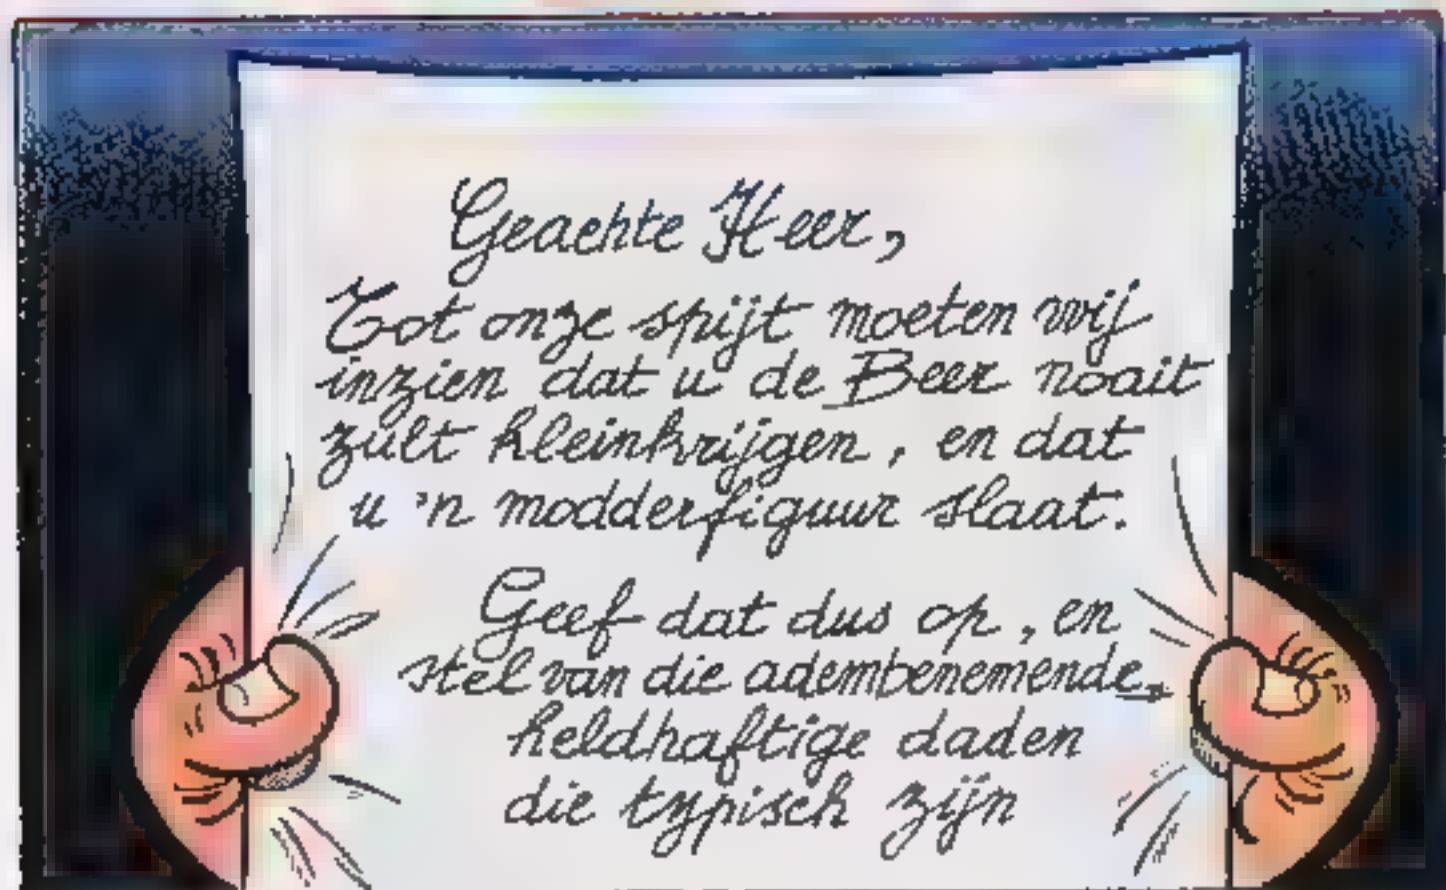 Geachte Heer,
Tot onze spijt moeten wij
inzien dat u de Beer nooit
zult kleinkrijgen, en dat
u 'n modderfiguur slaat.
Geef dat dus op, en
stel van die adembenemende,
heldhaftige daden
die typisch zijn